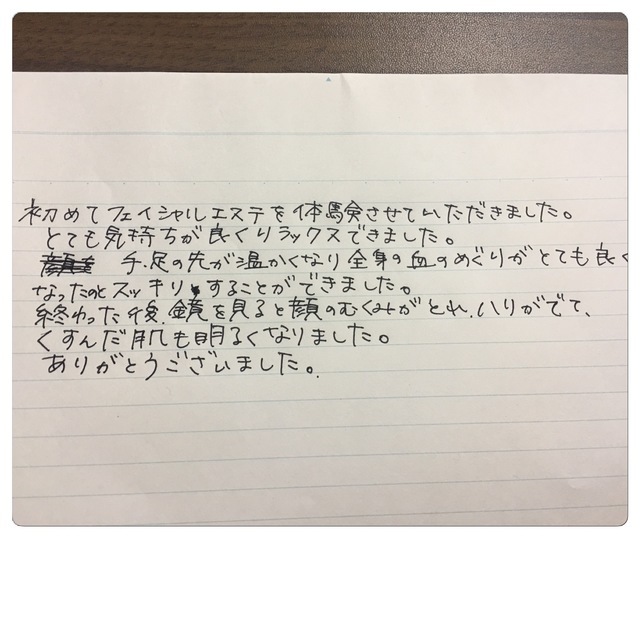 初めてフェイシャルエステを体験させていただきました。
とても気持ちが良くリラックスできました。
手、足の先が温かくなり全身の血のめぐりがとても良く
なったのとスッキリすることができました。
終わった後、鏡を見ると顔のむくみがとれ、ハリがでて、
くすんだ肌も明るくなりました。
ありがとうございました。